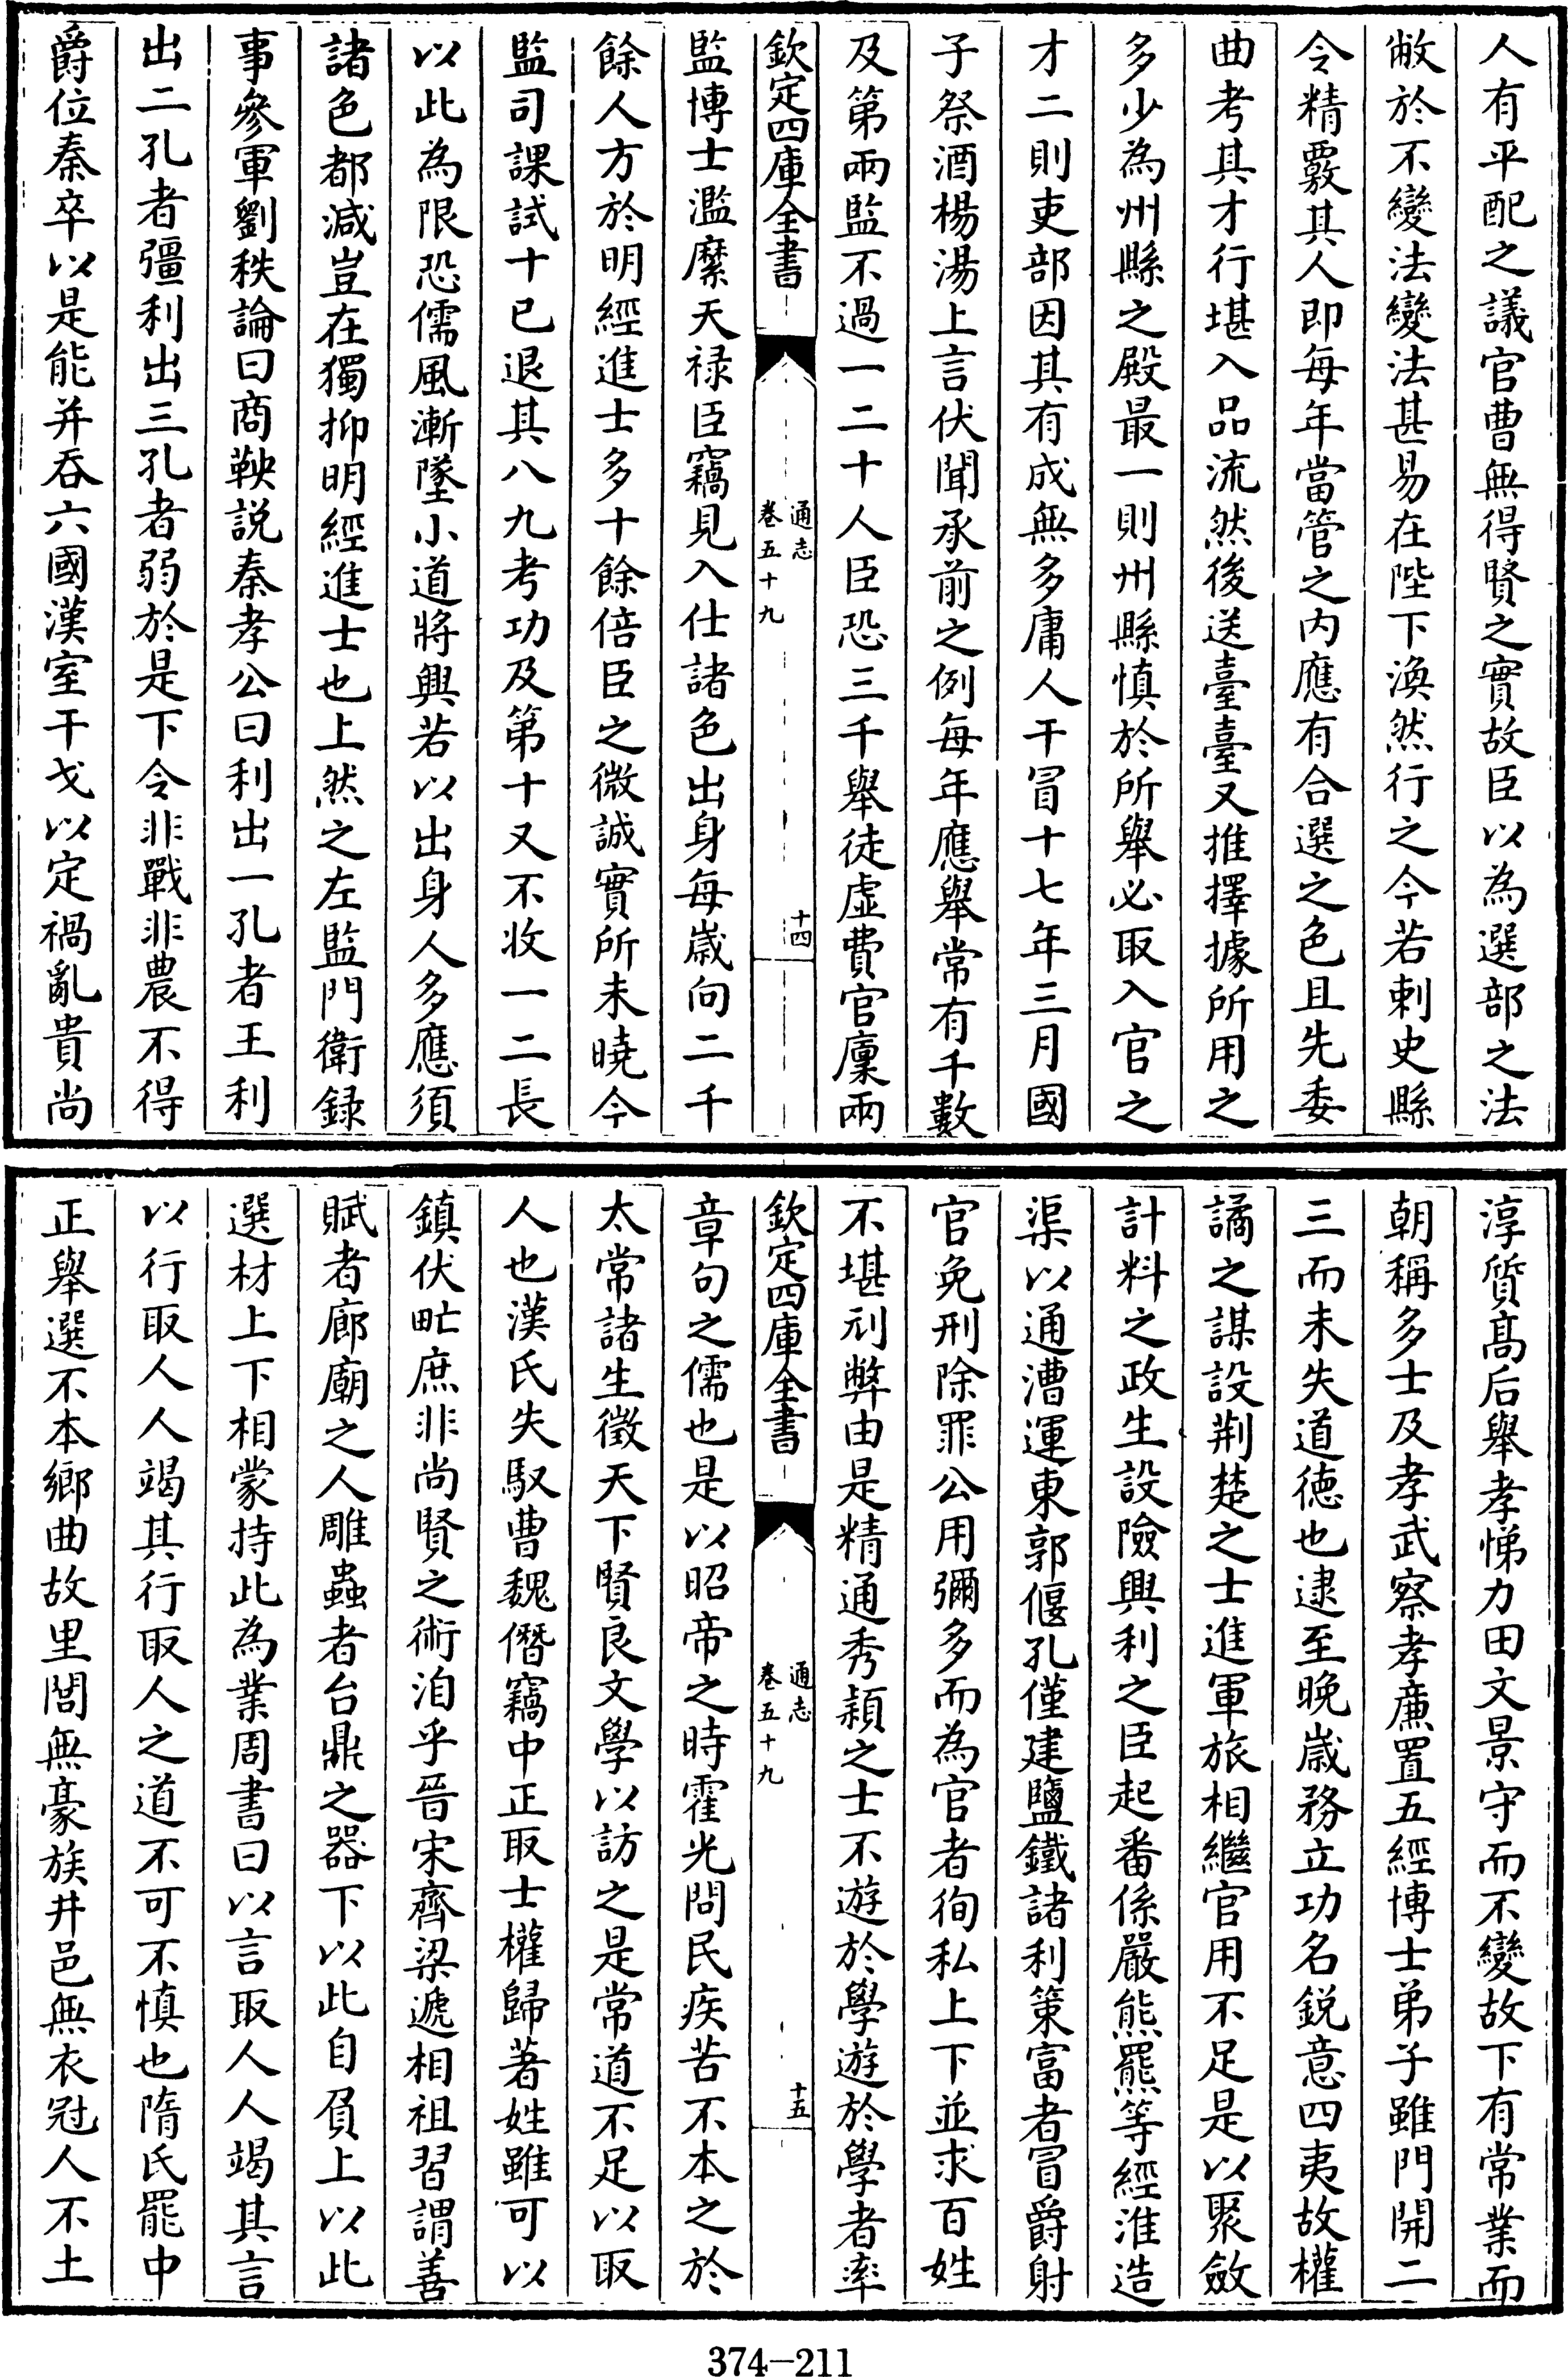 人有平配之議官曹無得賢之實故臣以為選部之法
敝於不變法變法甚易在陛下渙然行之今若刺史縣
令精覈其人即每年當管之内應有合選之色且先委
曲考其才行堪入品流然後送臺臺又推擇據所用之
多少為州縣之殿最一則州縣慎於所舉必取入官之
才二則吏部因其有成無多庸人干冒十七年三月國
子祭酒楊湯上言伏聞承前之例每年應舉常有千數
及第兩監不過一二十人臣恐三千學徒虛費官廩兩
欽定四庫全書
通志
卷五十九
十四
監博士濫縻天禄臣竊見入仕諸色出身每歳向二千
餘人方於明經進士多十餘倍臣之微誠實所未曉今
監司課試十已退其八九考功及第十又不收一二長
以此為限恐儒風漸墜小道將興若以出身人多應須
諸色都減豈在獨抑明經進士也上然之左監門衛録
事參軍劉秩論曰商鞅説秦孝公曰利出一孔者王利
出二孔者彊利出三孔者弱於是下令非戰非農不得
爵位秦卒以是能并吞六國漢室干戈以定禍亂貴尚
淳質髙后舉孝悌力田文景守而不變故下有常業而
朝稱多士及孝武察孝亷置五經博士弟子雖門開二
三而未失道徳也逮至晚歳務立功名鋭意四夷故權
譎之謀設荆楚之士進軍旅相繼官用不足是以聚斂
計料之政生設險興利之臣起番係嚴熊羆等經淮造
渠以通漕運東郭偃孔僅建鹽鐵諸利策富者冒爵射
官免刑除罪公用彌多而為官者徇私上下並求百姓
不堪刓弊由是精通秀穎之士不遊於學遊於學者率
欽定四庫全書
通志
卷五十九
十五
章句之儒也是以昭帝之時霍光問民疾苦不本之於
太常諸生徵天下賢良文學以訪之是常道不足以取
人也漢氏失馭曹魏僭竊中正取士權歸著姓雖可以
鎮伏甿庶非尚賢之術洎乎晉宋齊梁遞相祖習謂善
賦者廊廟之人雕蟲者台鼎之器下以此自負上以此
選材上下相蒙持此為業周書曰以言取人人竭其言
以行取人人竭其行取人之道不可不慎也隋氏罷中
正舉選不本鄉曲故里閭無豪族井邑無衣冠人不土
374-211